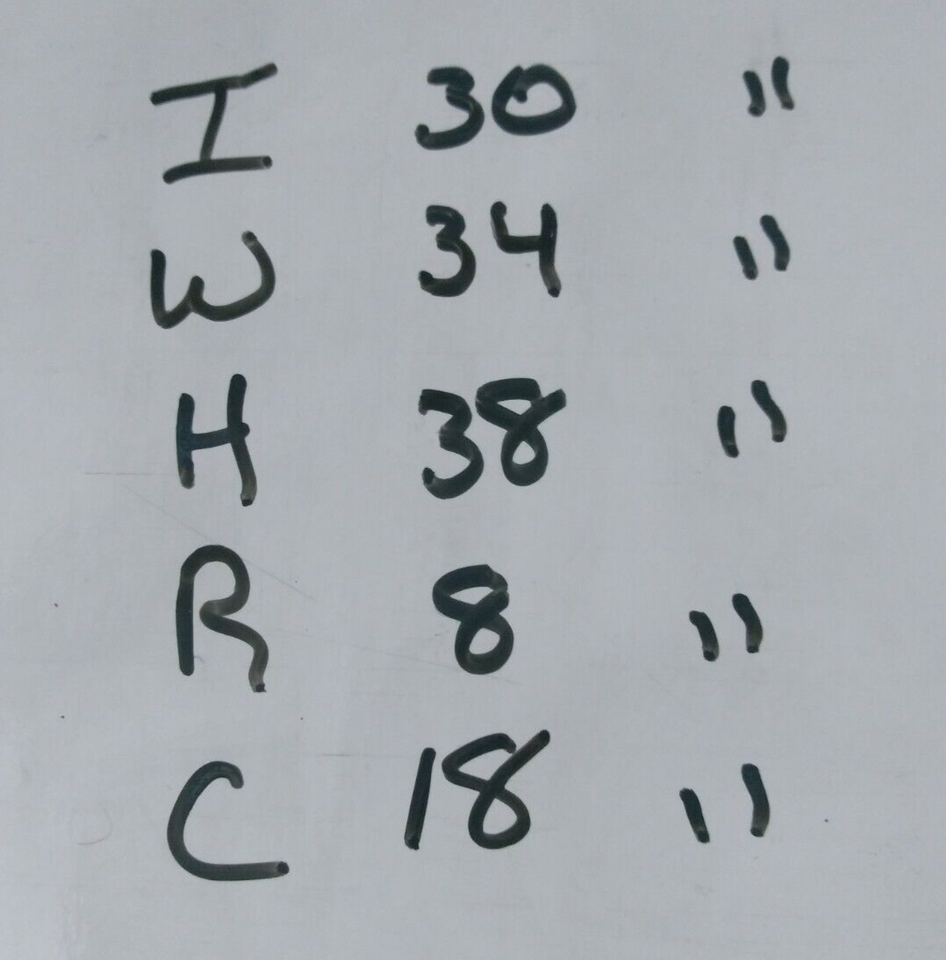 I 30 "
W 34 "
H 38 "
R 8 "
C 18 "